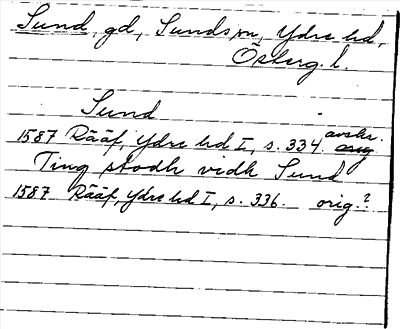 Sund, gd, Sunds sn, Ydre hd,
Österg. l.
Sund
avskr.
1587 Rääf, Ydre hd I, s. 334. orig
Ting stodh vidh Sund
1587 Rääf, Ydre hd I, s. 336. orig.?